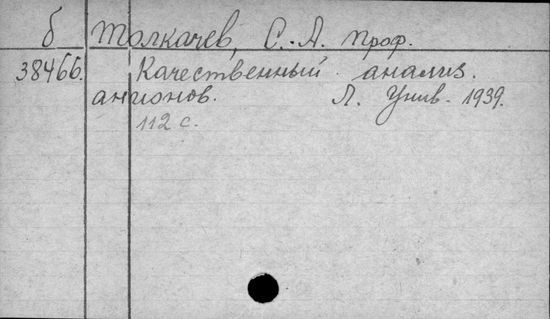 б Толкачев, С. А. проф.
38466. Качественный анализ.
анионов. Л. Унив. 1939.
112 с.